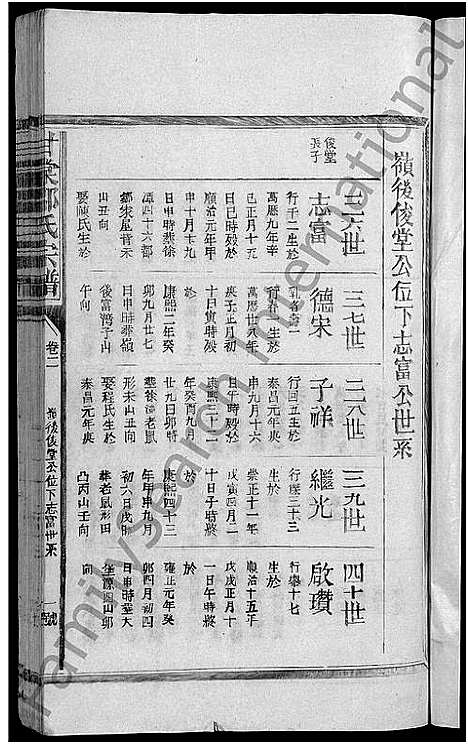 嶺後俊堂公位下志富公世系
俊堂
長子
三六世
志富
行千二生於
萬歷九年辛
巳正月十五
日巳時歿於
順治元年甲
申十月十九
日申時葬徐
潭四十六都
山丑向
娶陳氏生於
三七世
德宋
萬歷廿八年
庚子正月初
十日寅時歿
於
康熙二年癸
卯九月廿七
日申時葬嶺
後富灣子山
午向
三八世
子祥
行回五生於
泰昌元年庚
申九月十六
日午時歿於
康熙三十二
年癸酉九月
廿九日卯時
葬徐潭老鼠
形未山丑向
娶程氏生於
泰昌元年庚
三九世
繼光
行璞三十三
生於
崇正十一年
戊寅四月二
十日子時歿
於
康熙四十三
年甲申九月
初六日戌時
葬老鼠形田
凸丙山壬向
四十世
啟瓚
行舉十七
生於
順治十五年
戊戌正月十
一日午時歿
於
雍正元年癸
卯四月初四
日申時葬大
山卯
向
甘棠
氏宗譜
卷二
嶺後俊堂公位下志富世系
FamilySearch International